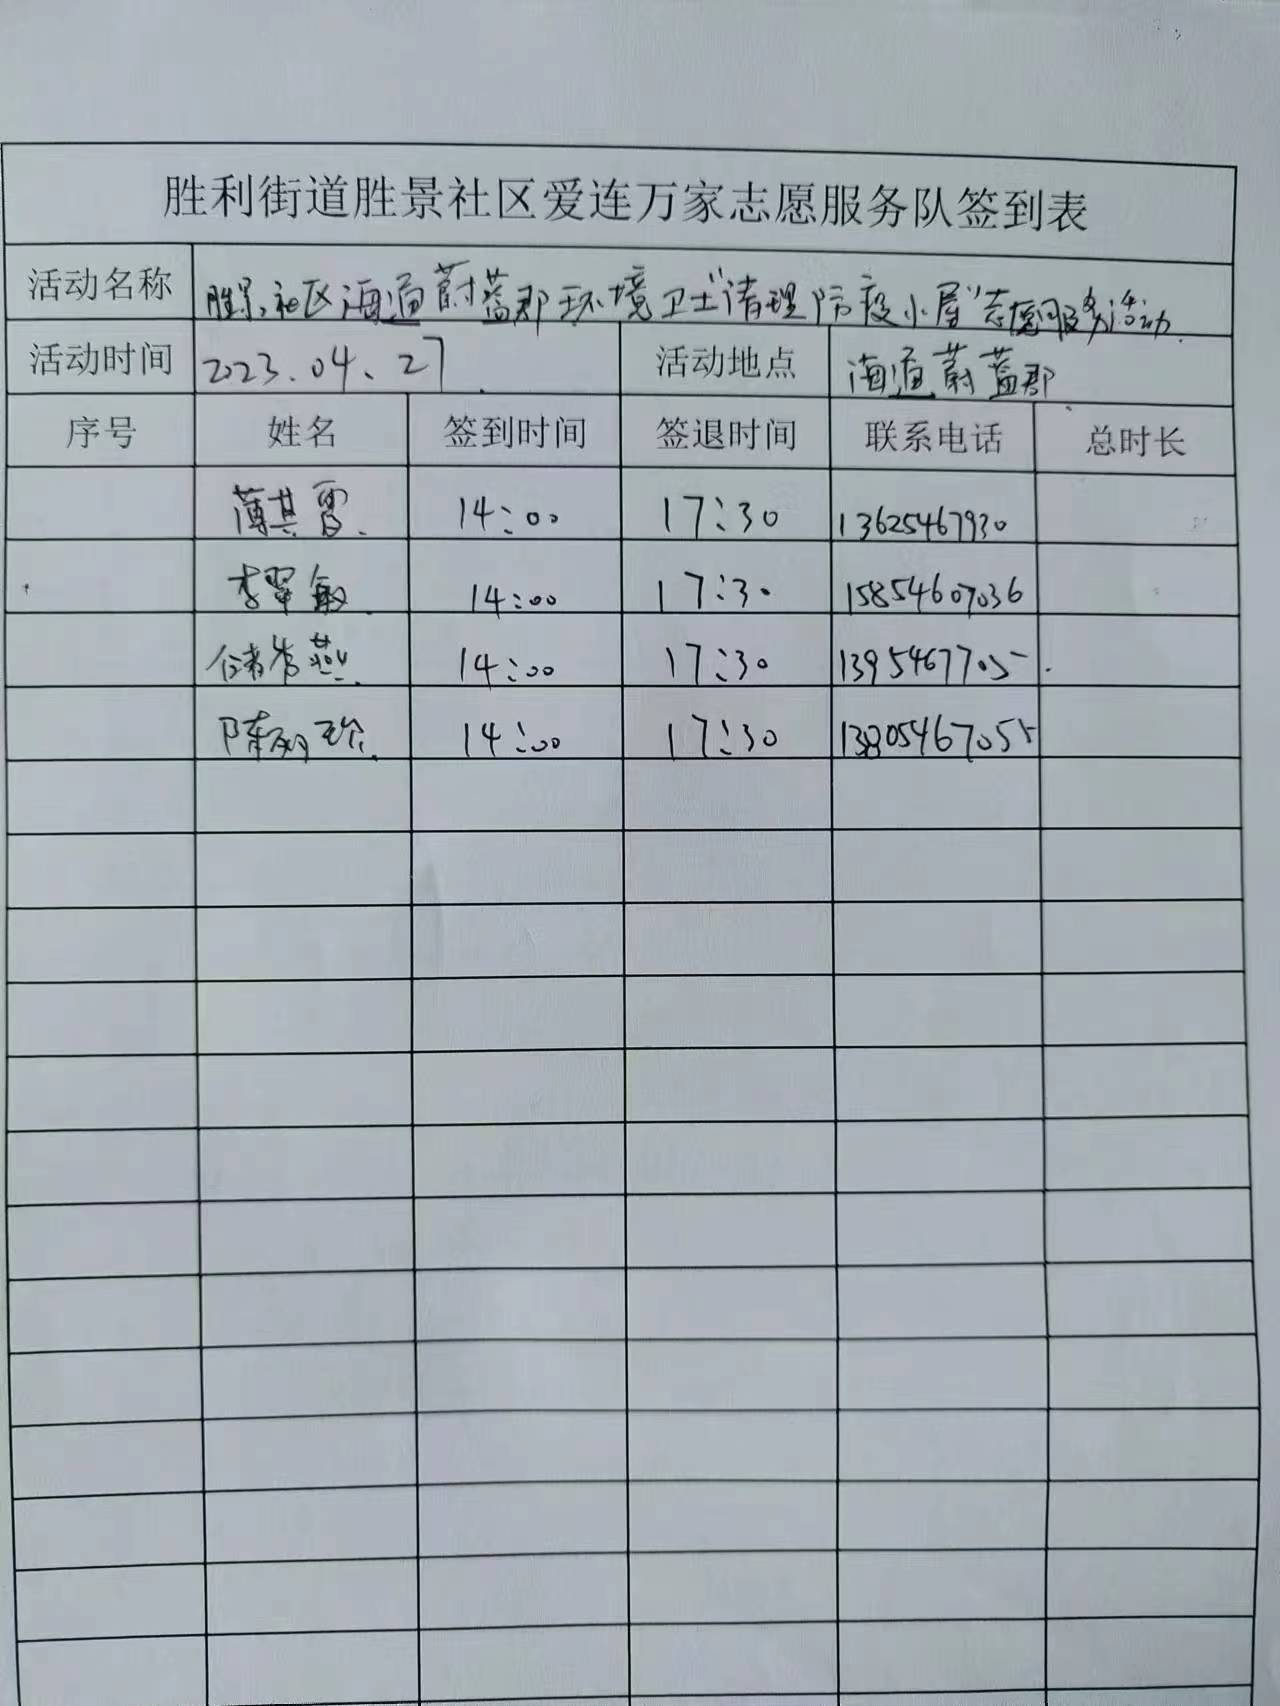 胜利街道胜景社区爱连万家志愿服务队签到表
活动名称 胜景社区海通蔚蓝郡环境卫士“清理防疫小屋”志愿服务活动.
活动时间 2023.04.27 活动地点 海通蔚蓝郡
序号 姓名 签到时间 签退时间 联系电话 总时长
薄其雷. 14:00 17:30 13625467930
李翠敏. 14:00 17:30 15854607036
储秀燕. 14:00 17:30
陈 14:00 17:30 13805467055